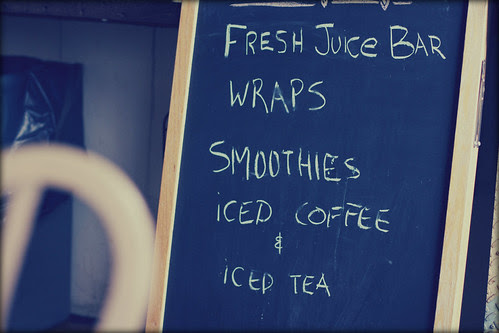 FRESH JUICE BAR
WRAPS
SMOOTHIES
iCED COFFEE
&
iCED TEA